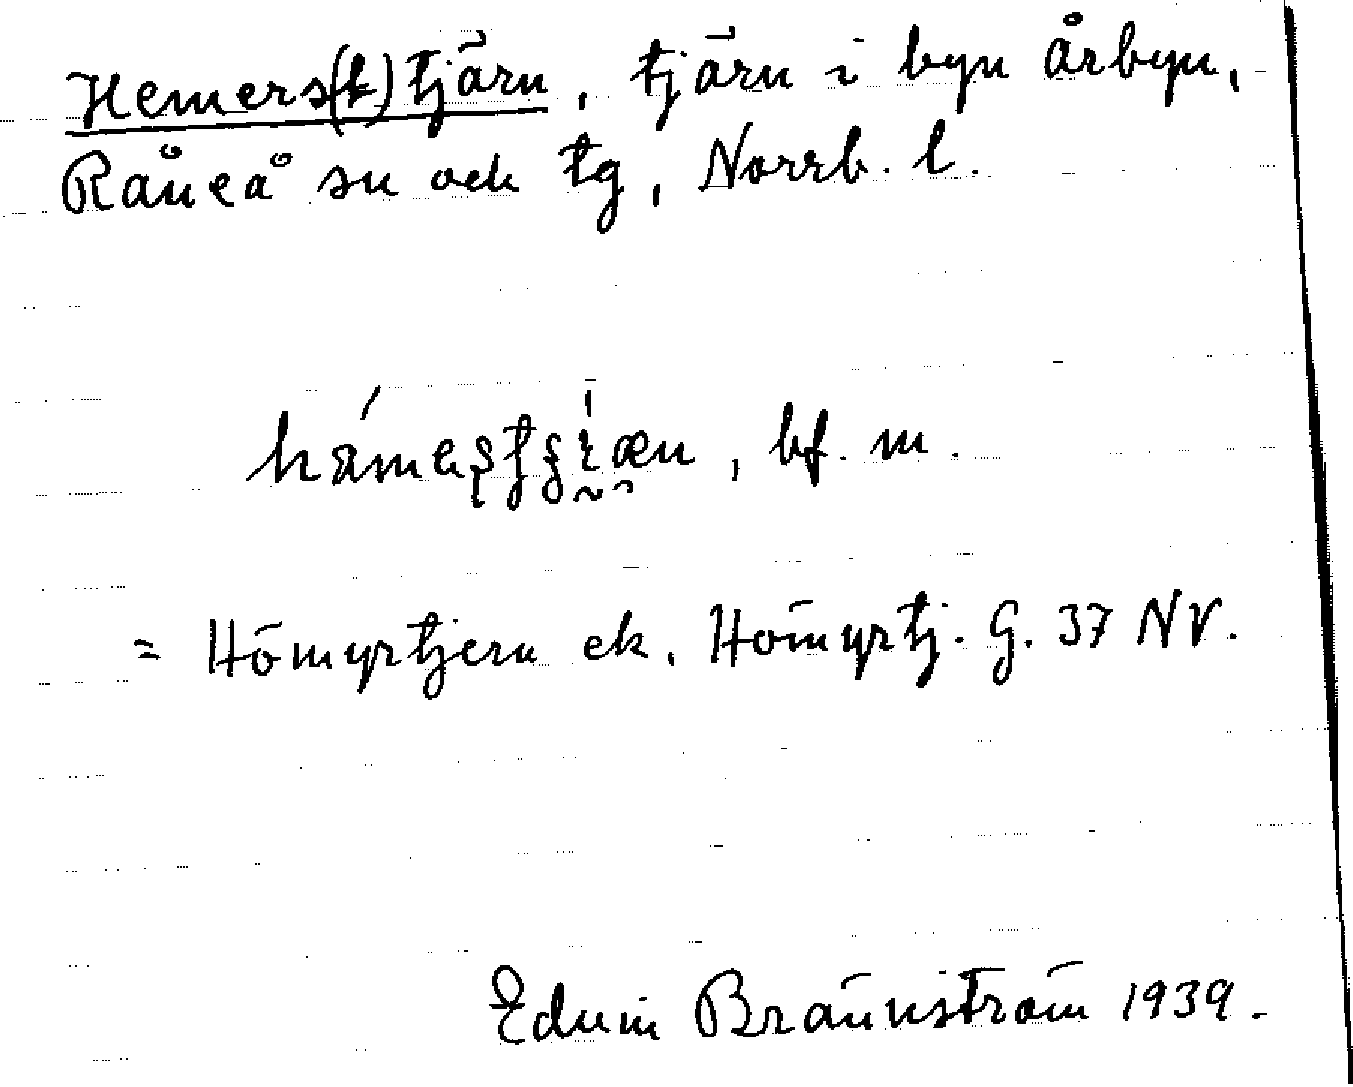 Hemers(k)tjärn, tjärn i byn Årbyn,
Råneå sn och tg, Norrb. l.
, bf. m.
= Hömyrtjern ek. Hömyrtj. G. 37 NV.
Edvin Brännström 1939.